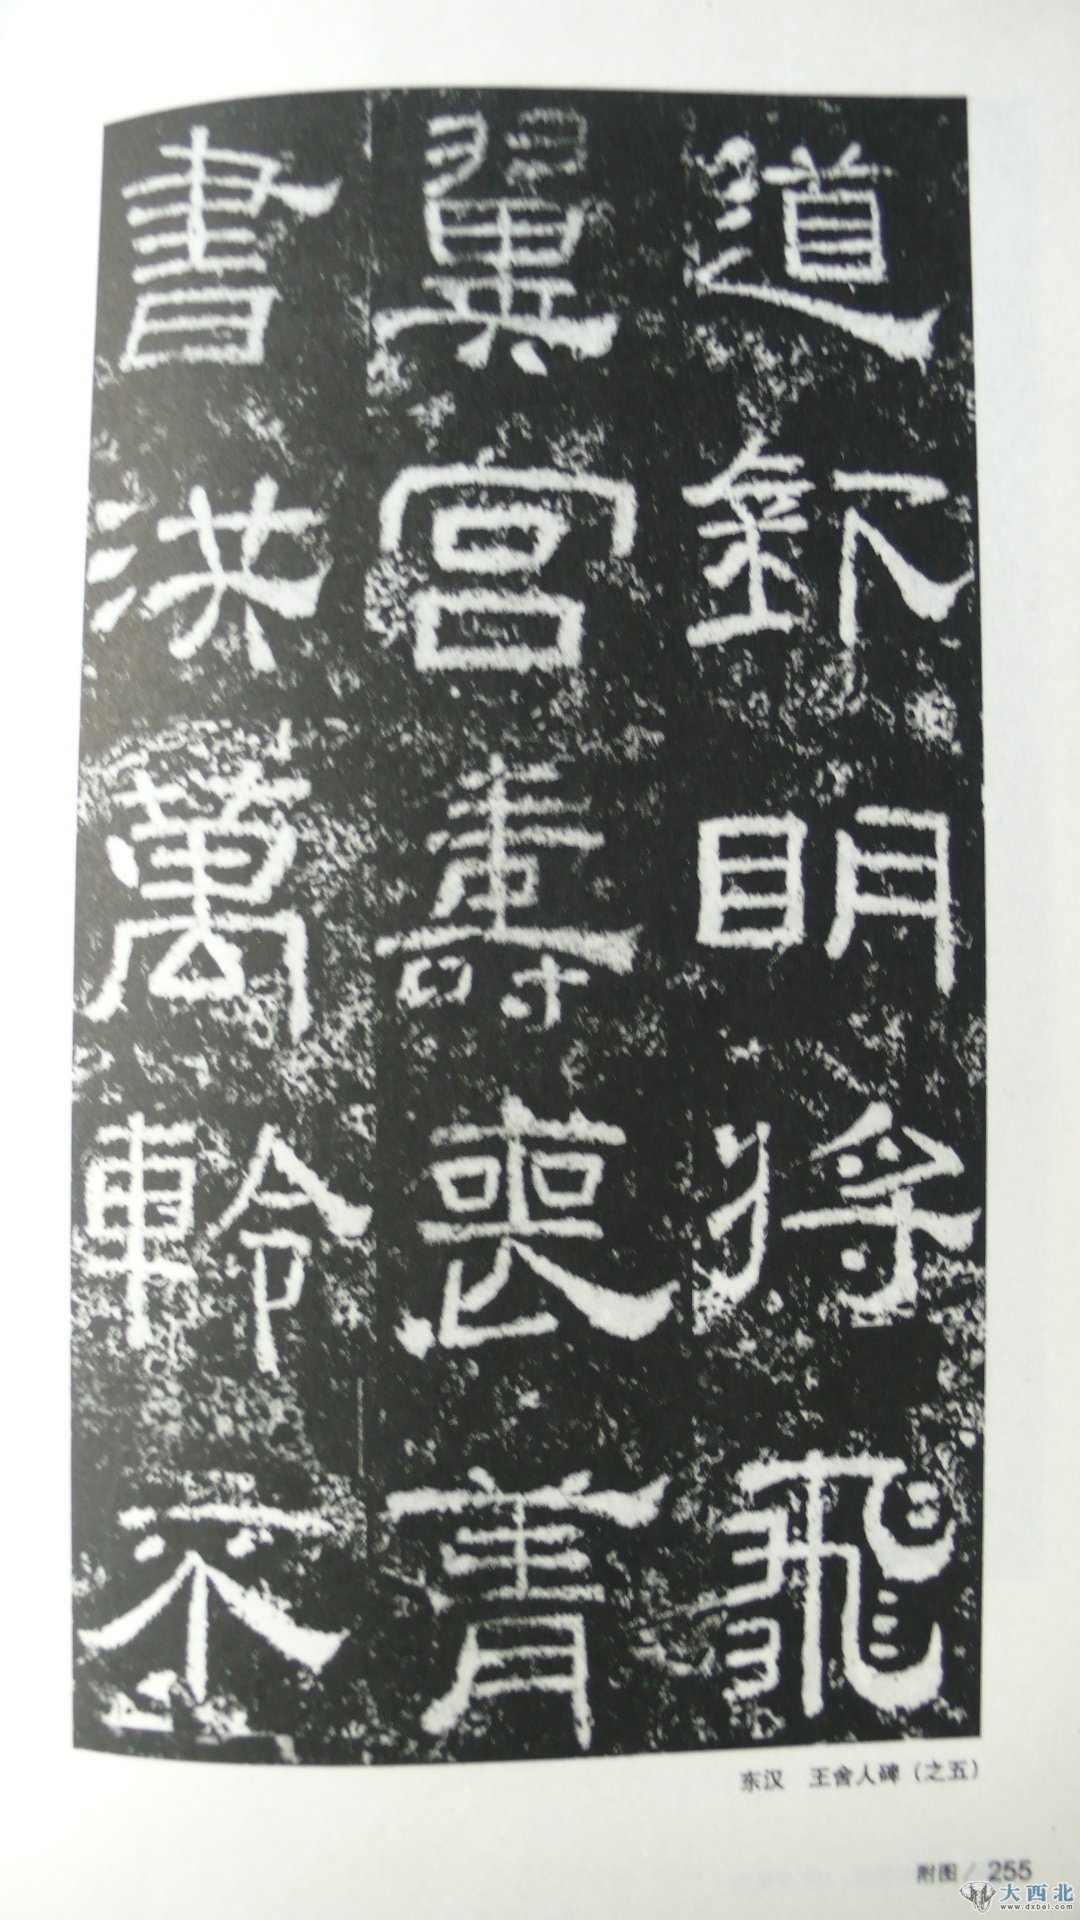 道明将飛
翼宮壽喪
書洪萬軨
东汉 王舍人碑(之五)
附图/255
大西北
www.dxbei.com